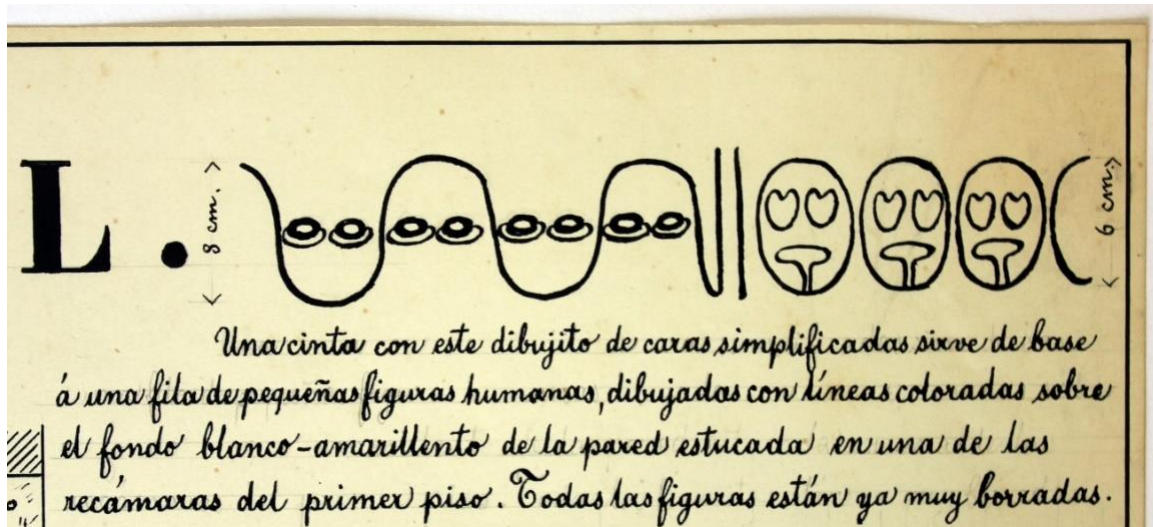 L.
8 cm.
6 cm.
Una cinta con este dibujito de caras simplificadas sirve de base
á una fila de pequeñas figuras humanas, dibujadas con líneas coloradas sobre
el fondo blanco-amarillento de la pared estucada en una de las
recámaras del primer piso. Todas las figuras están ya muy borradas.